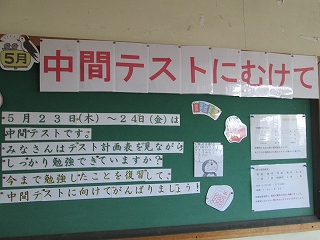 5月
中間テストにむけて
5月23日(木)～24日(金)は
中間テストです。
みなさんはテスト計画表を見ながら
しっかり勉強できていますか？
今まで勉強したことを復習して、
中間テストに向けてがんばりましょう！